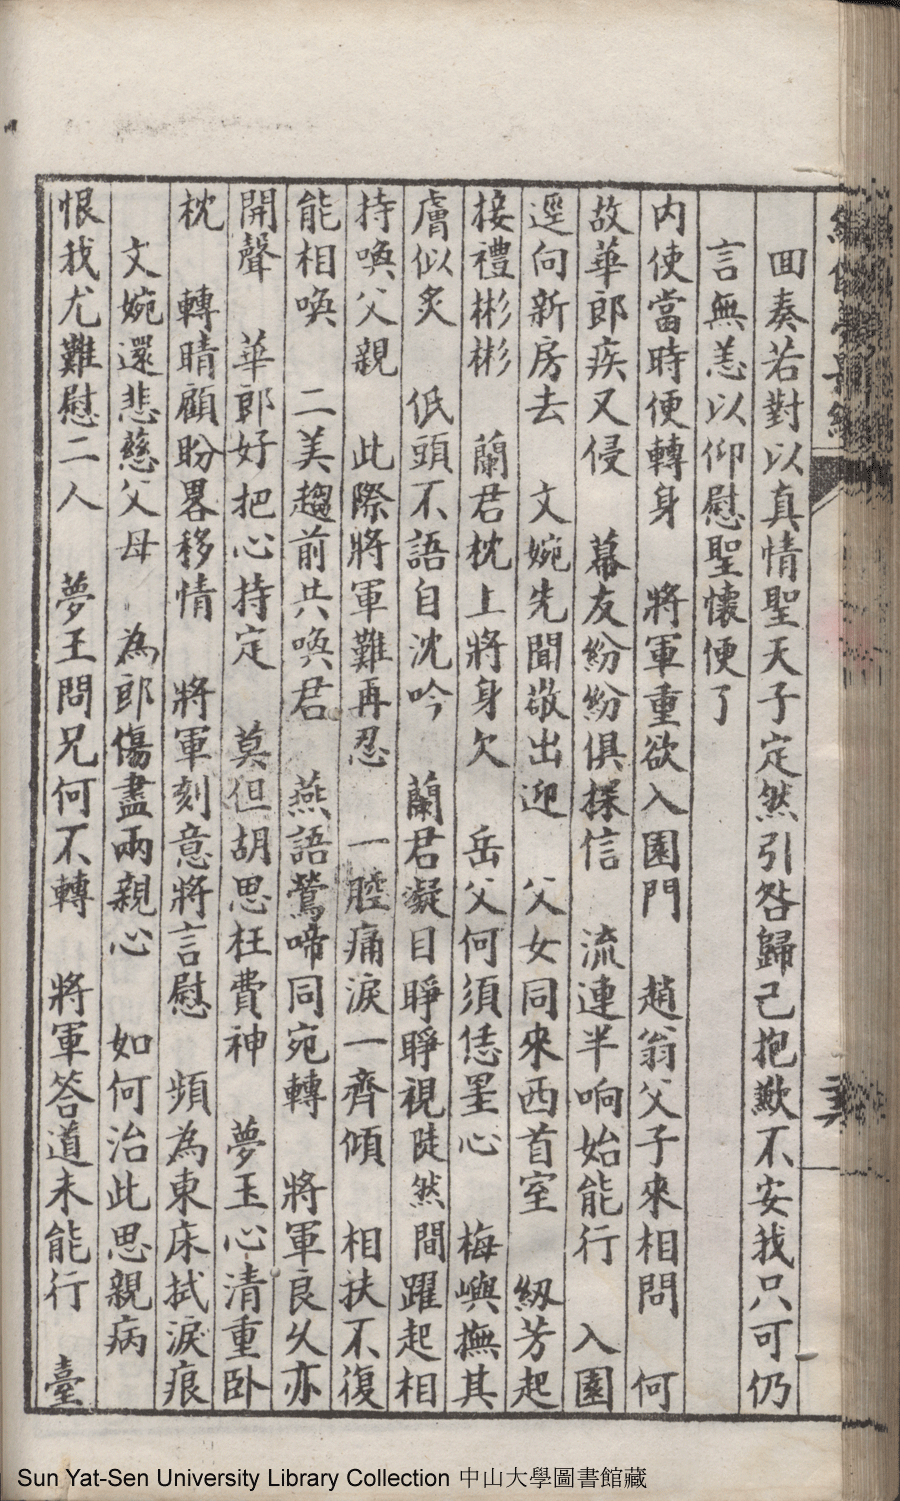 回奏若對以真情聖天子定然引咎歸己抱歉不安我只可仍
言無恙以仰慰聖懷便了
内使當時便轉身　將軍重欲入園門　趙翁父子來相問　何
故華郎疾又侵　幕友紛紛俱探信　流連半响始能行　入園
逕向新房去　文婉先聞敬出迎　父女同來西首室　紉芳起
接禮彬彬　蘭君枕上將身欠　岳父何須恁罣心　梅嶼撫其
膚似炙　低頭不語自沈吟　蘭君凝目睜睜視陡然間躍起相
持喚父親　此際將軍難再忍　一腔痛淚一齊傾　相扶不復
能相喚　二美趨前共喚君　燕語鶯啼同宛轉　將軍良久亦
開聲　華郎好把心持定　莫但胡思枉費神　夢玉心清重卧
枕　轉晴顧盼畧移情　將軍刻意將言慰　頻為東床拭淚痕
文婉還悲慈父母　為郎傷盡兩親心　如何治此思親病
恨我尤難慰二人　夢玉問兄何不轉　將軍答道未能行　臺
Sun Yat-Sen University Library Collection 中山大學圖書館藏